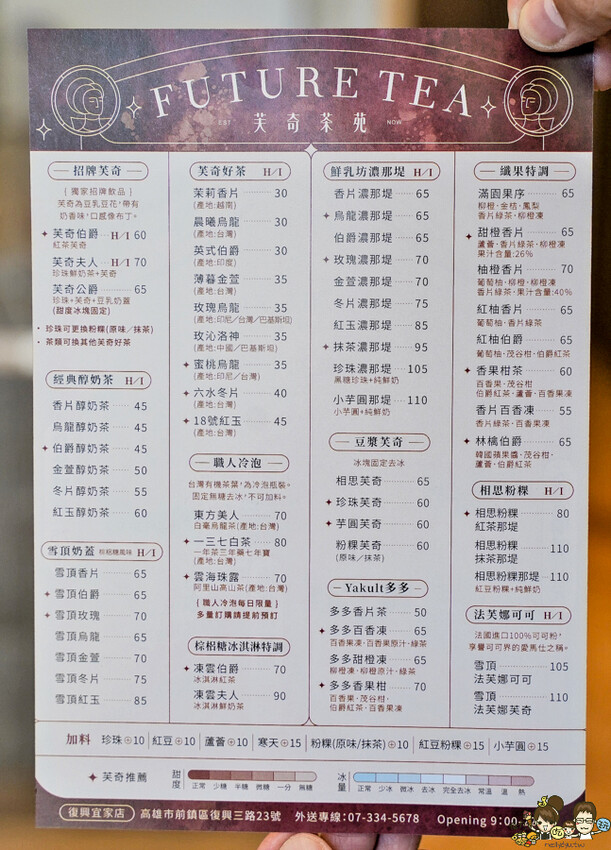 FUTURE TEA
EST 芙奇茶苑 NOW
招牌芙奇
{ 獨家招牌飲品 }
芙奇為豆乳豆花,帶有
奶香味,口感像布丁。
芙奇伯爵 H/I 60
紅茶芙奇
芙奇夫人 H/I 70
珍珠鮮奶茶+芙奇
芙奇公爵 65
珍珠+芙奇+豆乳奶蓋
(甜度冰塊固定)
・珍珠可更換粉粿(原味/抹茶)
・茶類可換其他芙奇好茶
經典醇奶茶 H/I
香片醇奶茶 45
烏龍醇奶茶 45
伯爵醇奶茶 45
金萱醇奶茶 50
冬片醇奶茶 55
紅玉醇奶茶 60
雪頂奶蓋 棕梠糖風味 H/I
雪頂香片 65
雪頂伯爵 65
雪頂玫瑰 70
雪頂烏龍 65
雪頂金萱 70
雪頂冬片 75
雪頂紅玉 85
芙奇好茶 H/I
茉莉香片 30
(產地:越南)
晨曦烏龍 30
(產地:台灣)
英式伯爵 30
(產地:印度)
薄暮金萱 35
(產地:台灣)
玫瑰烏龍 35
(產地:印尼/台灣/巴基斯坦)
玫沁洛神 35
(產地:中國/巴基斯坦)
蜜桃烏龍 35
(產地:印尼/台灣)
六水冬片 40
(產地:台灣)
18號紅玉 45
(產地:台灣)
職人冷泡
台灣有機茶葉,為冷泡瓶裝。
固定無糖去冰,不可加料。
東方美人 70
白毫烏龍茶(產地:台灣)
一三七白茶 80
一年茶三年藥七年寶
(產地:台灣)
雲海珠露 70
阿里山高山茶(產地:台灣)
{ 職人冷泡每日限量 }
多量訂購請提前預訂
棕梠糖冰淇淋特調
凍雲伯爵 70
冰淇淋紅茶
凍雲夫人 90
冰淇淋鮮奶茶
鮮乳坊濃那堤 H/I
香片濃那堤 65
烏龍濃那堤 65
伯爵濃那堤 65
玫瑰濃那堤 70
金萱濃那堤 70
冬片濃那堤 75
紅玉濃那堤 85
抹茶濃那堤 95
珍珠濃那堤 105
黑糖珍珠+純鮮奶
小芋圓濃那堤 110
小芋圓+純鮮奶
豆漿芙奇
冰塊固定去冰
相思芙奇 65
珍珠芙奇 60
芋圓芙奇 60
粉粿芙奇 60
(原味/抹茶)
Yakult多多
多多香片茶 50
多多百香凍 65
百香果凍、百香果原汁、綠茶
多多甜橙凍 65
柳橙凍、柳橙原汁、綠茶
多多香果柑 70
百香果、茂谷柑、
伯爵紅茶、百香果凍
纖果特調
滿園果序 65
柳橙、金桔、鳳梨
香片綠茶、柳橙凍
甜橙香片 65
蘆薈、香片綠茶、柳橙凍
果汁含量:26%
柚橙香片 70
葡萄柚、柳橙、柳橙凍
香片綠茶、果汁含量:40%
紅柚香片 65
葡萄柚、香片綠茶
紅柚伯爵 65
葡萄柚、茂谷柑、伯爵紅茶
香果柑茶 60
百香果、茂谷柑
伯爵紅茶、蘆薈、百香果凍
香片百香凍 55
香片綠茶、百香果凍
林檎伯爵 65
韓國蘋果醬、茂谷柑、
蘆薈、伯爵紅茶
相思粉粿 H/I
相思粉粿 80
紅茶那堤
相思粉粿 110
抹茶那堤
相思粉粿那堤 110
紅豆粉粿+純鮮奶
法芙娜可可 H/I
法國進口100%可可粉,
享譽可可界的愛馬仕之稱。
雪頂 105
法芙娜可可
雪頂 110
法芙娜芙奇
加料 珍珠+10 紅豆+10 蘆薈+10 寒天+15 粉粿(原味/抹茶)+10 紅豆粉粿+15 小芋圓+15
芙奇推薦
甜度 正常 少糖 半糖 微糖 一分 無糖
冰量 正常 少冰 微冰 去冰 完全去冰 常溫 溫 熱
復興宜家店 高雄市前鎮區復興三路23號 外送專線:07-334-5678 Opening 9:00-